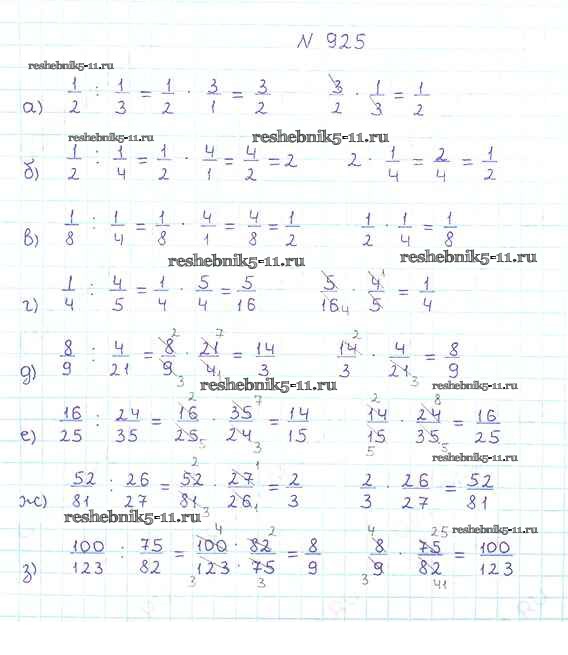 N 925
reshebnik5-11.ru
а) 1/2 : 1/3 = 1/2 · 3/1 = 3/2 3/2 · 1/3 = 1/2
reshebnik5-11.ru reshebnik5-11.ru
б) 1/2 : 1/4 = 1/2 · 4/1 = 4/2 = 2 2 · 1/4 = 2/4 = 1/2
в) 1/8 : 1/4 = 1/8 · 4/1 = 4/8 = 1/2 1/2 · 1/4 = 1/8
reshebnik5-11.ru reshebnik5-11.ru
г) 1/4 : 4/5 = 1/4 · 5/4 = 5/16 5/16 4 · 4/5 1 = 1/4
д) 8/9 : 4/21 = 8/9 2 3 · 21/4 7 1 = 14/3 14/3 2 · 4/21 3 = 8/9
reshebnik5-11.ru reshebnik5-11.ru
е) 16/25 : 24/35 = 16/25 2 5 · 35/24 7 3 = 14/15 14/15 2 5 · 24/35 8 5 = 16/25
reshebnik5-11.ru
ж) 52/81 : 26/27 = 52/81 2 3 · 27/26 1 1 = 2/3 2/3 · 26/27 = 52/81
reshebnik5-11.ru reshebnik5-11.ru
з) 100/123 : 75/82 = 100/123 4 3 · 82/75 2 3 = 8/9 8/9 4 3 · 75/82 25 41 = 100/123